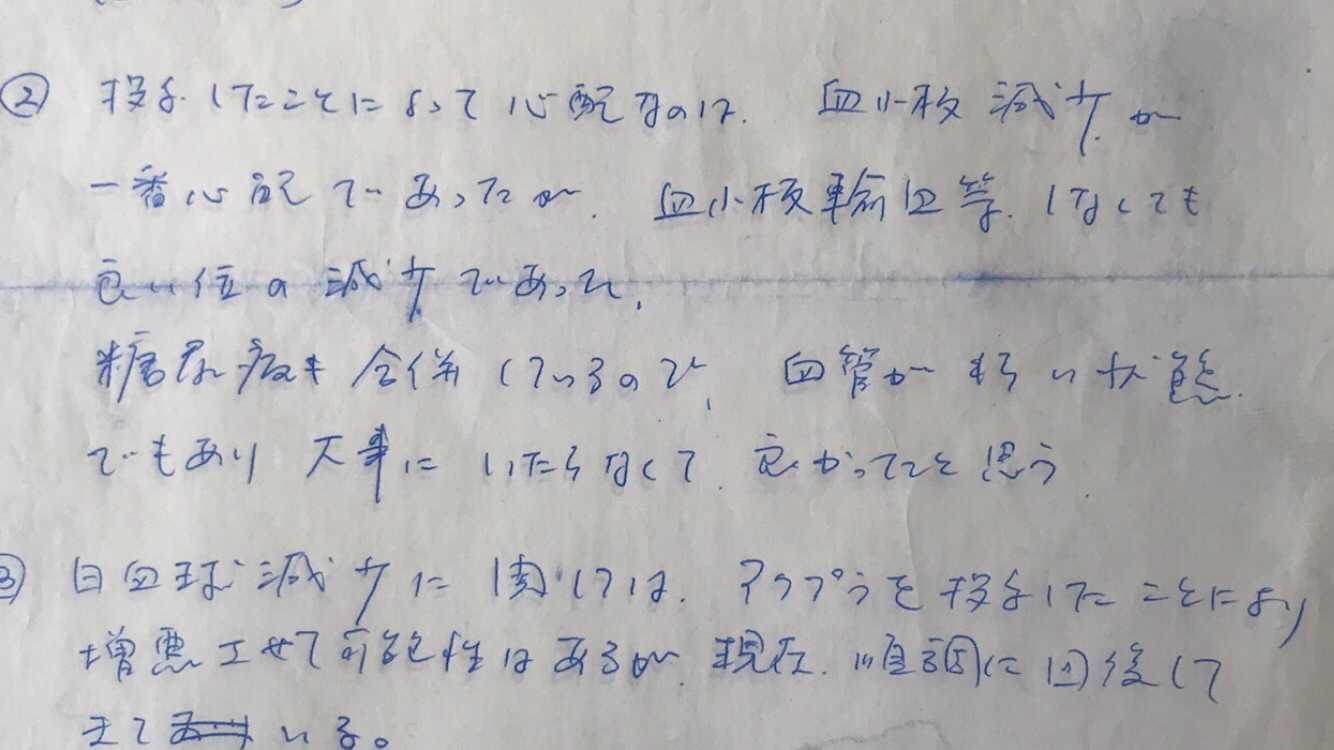 ② 投与したことによって心配なのは、血小板減少が
一番心配であったが、血小板輸血等、しなくても
良い位の減少であって、
糖尿病も合併しているので、血管が脆い状態
でもあり大事にいたらなくて、良かったと思う
③ 白血球減少に関しては、アクプラを投与したことにより
増悪させて可能性はあるが、現在、順調に回復して
きている。